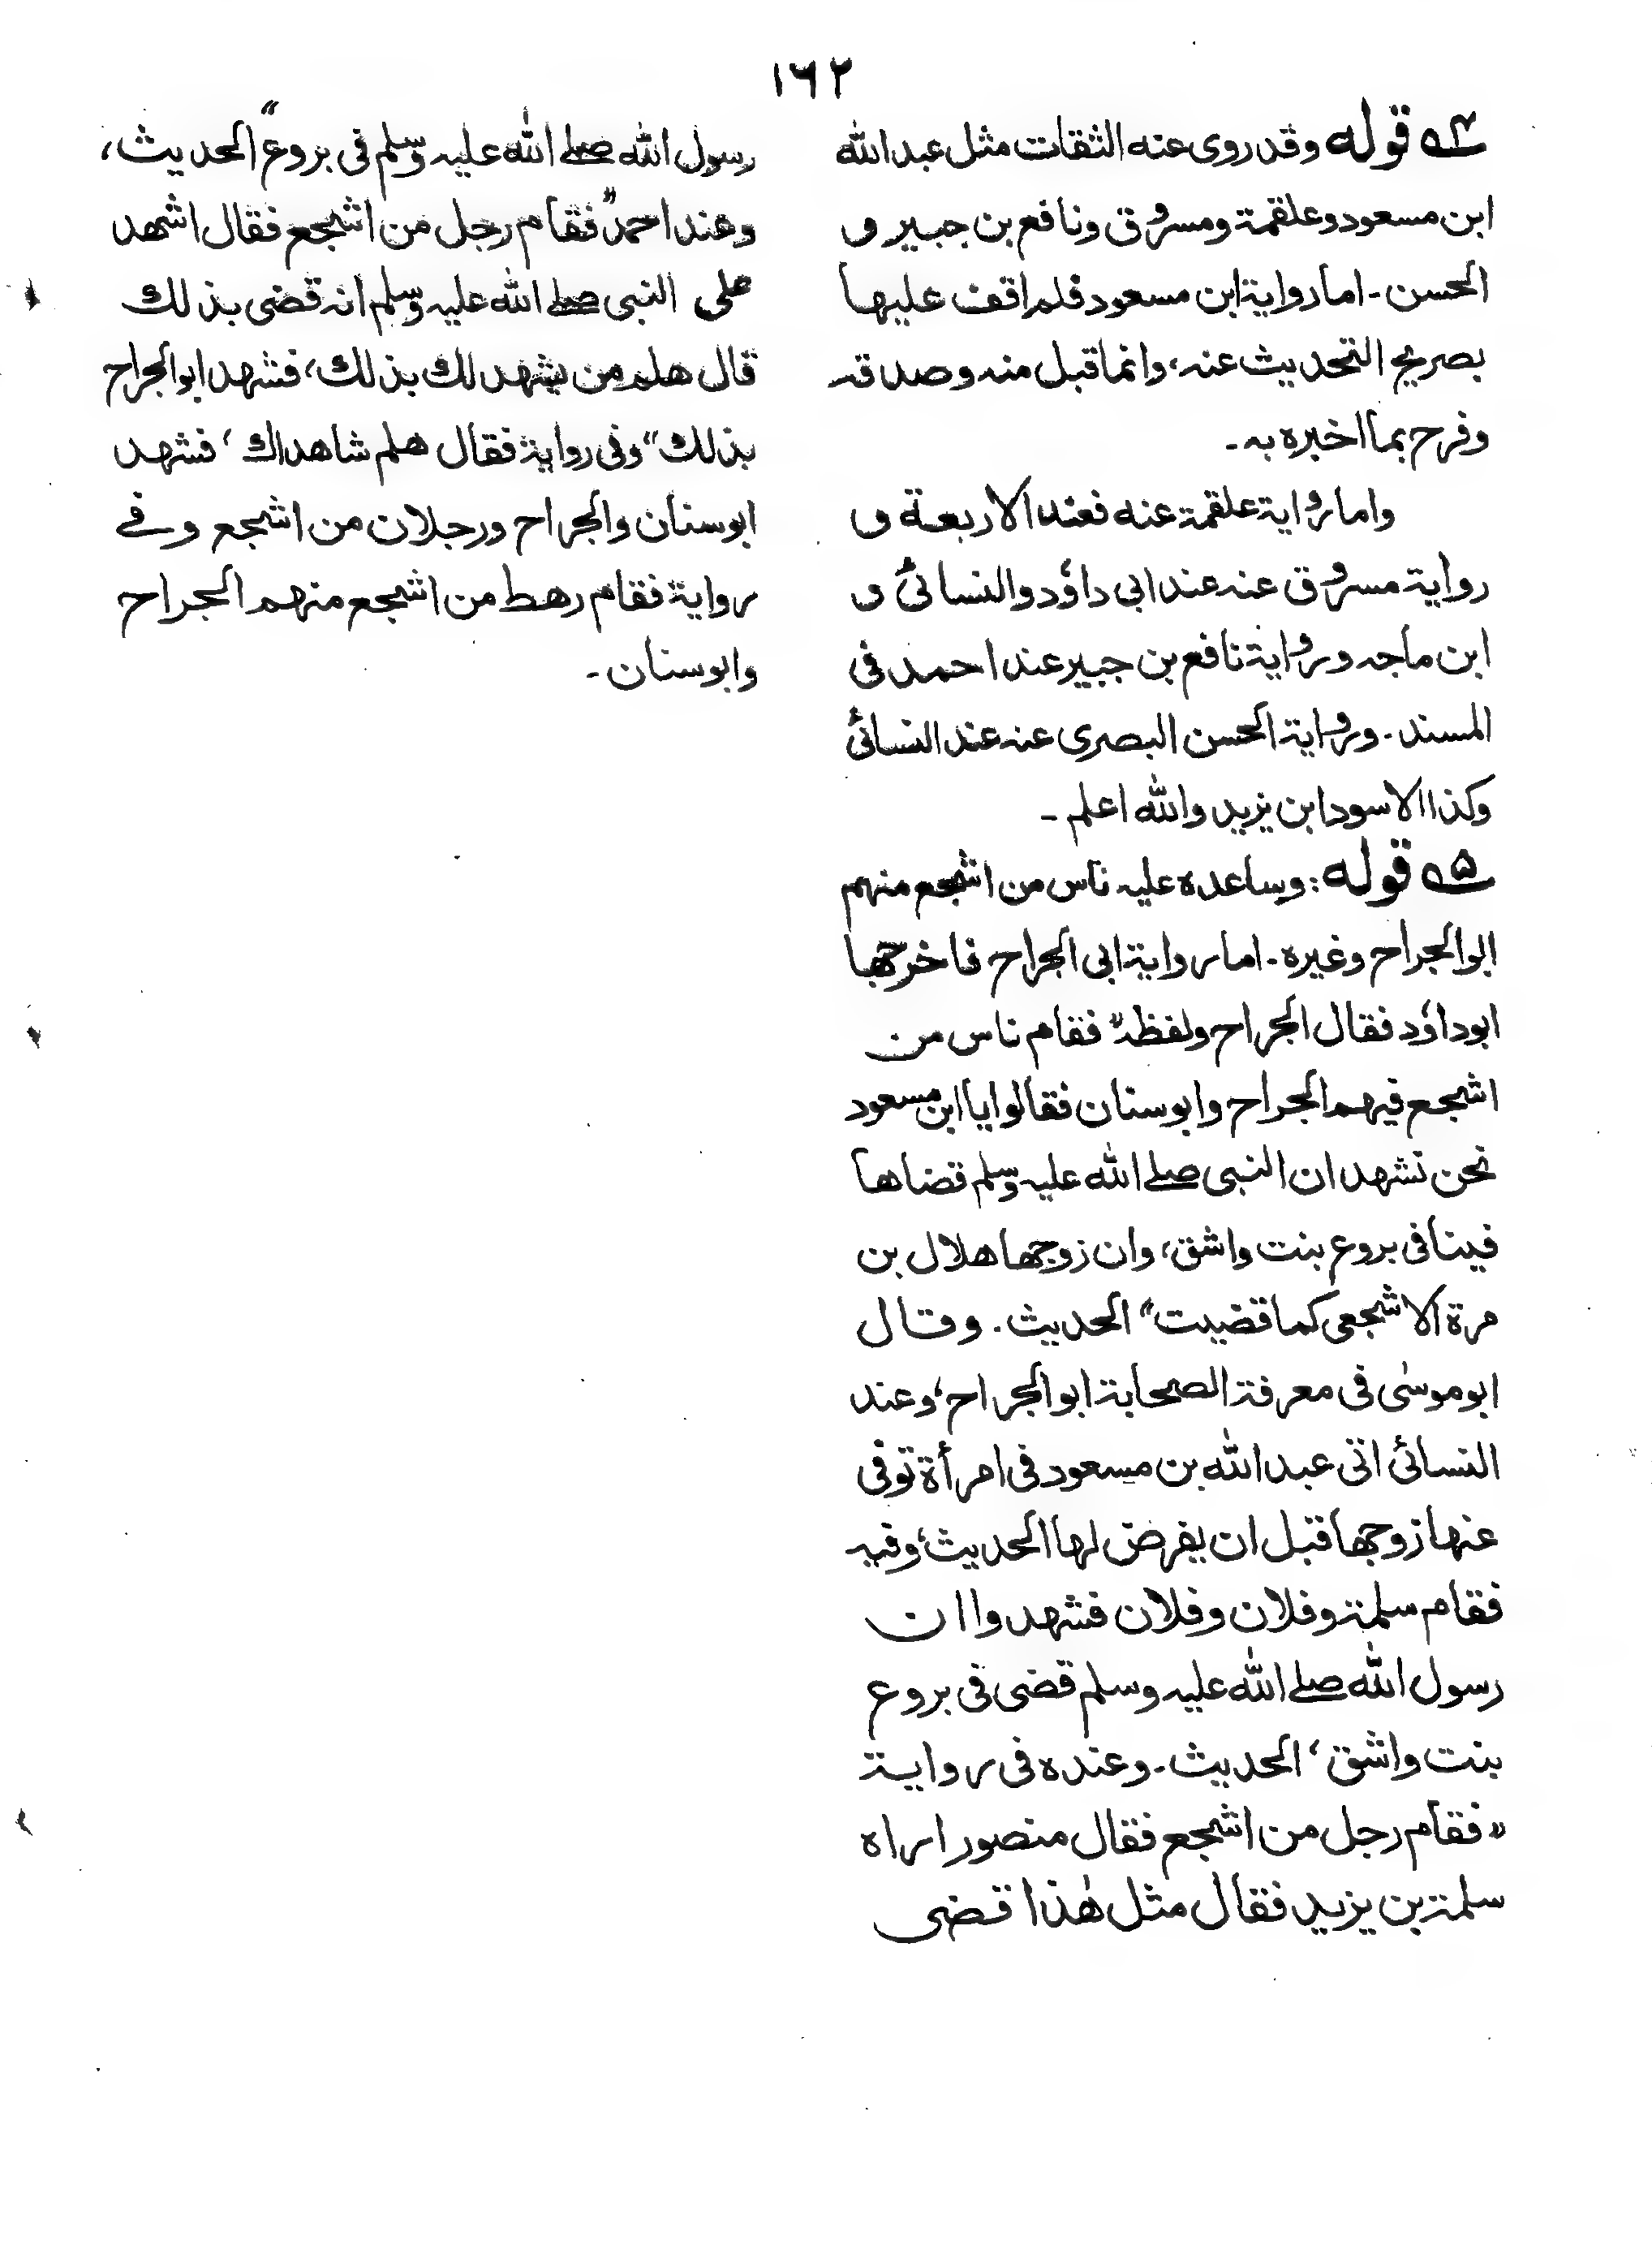 ۱۶۲
۴ قوله وقد روى عنه الثقات مثل عبد الله
ابن مسعود وعلقمة ومسروق ونافع بن جبير و
الحسن ـ اما رواية ابن مسعود فلم اقف عليها
بصريح التحديث عنه، وانما قبل منه وصدقه
وفرح بما اخبره به ـ
واما رواية علقمة عنه فعند الاربعة و
رواية مسروق عنه عند ابى داؤد والنسائىؒ و
ابن ماجه ورواية نافع بن جبير عند احمد فى
المسند ـ ورواية الحسن البصرى عنه عند النسائىؒ
وكذا الاسود ابن يزيد والله اعلم ـ
۵ قوله : وساعده عليه ناس من اشجع منهم
ابو الجراح وغيره ـ اما رواية ابى الجراح فاخرجها
ابوداؤد فقال الجراح ولفظه "فقام ناس من
اشجع فيهم الجراح وابوسنان فقالوا يا ابن مسعود
نحن نشهد ان النبى صلے الله عليه وسلم قضاها
فينا فى بروع بنت واشق، وان زوجها هلال بن
مرة الاشجعى كما قضيت" الحديث ـ وقال
ابو موسٰى فى معرفة الصحابة ابو الجراح، وعند
النسائى اتى عبد الله بن مسعود فى امرأة توفى
عنها زوجها قبل ان يفرض لها الحديث، وفيه
فقام سلمة وفلان وفلان فشهدوا ان
رسول الله صلے الله عليه وسلم قضى فى بروع
بنت واشق، الحديث ـ وعنده فى رواية
"فقام رجل من اشجع فقال منصور اراه
سلمة بن يزيد فقال مثل هٰذا قضى
رسول الله صلے الله عليه وسلم فى بروع" الحديث،
وعند احمد "فقام رجل من اشجع فقال اشهد
على النبى صلے الله عليه وسلم انه قضى بذلك
قال هلم من يشهد لك بذلك، فشهد ابو الجراح
بذلك" وفى رواية فقال هلم شاهداك، فشهد
ابوسنان والجراح ورجلان من اشجع وفے
رواية فقام رهط من اشجع منهم الجراح
وابوسنان ـ